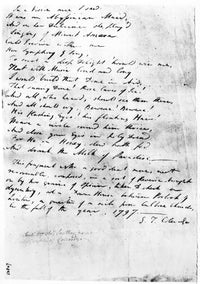 In a Vision once I saw:
It was an Abyssinian Maid,
And on her Dulcimer she play'd
Singing of Mount Amara.
Could I revive within me
Her Symphony & Song,
To such a deep Delight 'twould win me,
That with Music loud and long
I would build that Dome in Air,
That sunny Dome! those Caves of Ice!
And all, who heard, should see them there,
And all should cry, Beware! Beware!
His flashing Eyes! his floating Hair!
Weave a circle round him thrice,
And close your Eyes in holy Dread:
For He on Honey-dew hath fed
And drank the Milk of Paradise.
This fragment with a good deal more, not
recoverable, composed, in a sort of Reverie brought
on by two grains of Opium, taken to check a
dysentery, at a Farm House between Porlock &
Linton, a quarter of a mile from Culbone Church,
in the fall of the year, 1797.
S. T. Coleridge